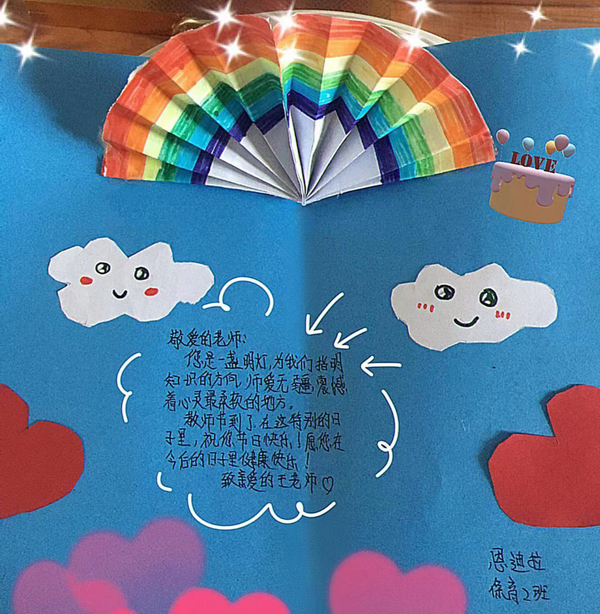 LOVE
敬爱的老师:
您是一盏明灯,为我们指明
知识的方向,师爱无疆震憾
着心灵最柔软的地方。
教师节到了在这特别的日
子里,祝您节日快乐!愿您在
今后的日子里健康快乐!
致亲爱的王老师♡
恩迪拉
保育2班